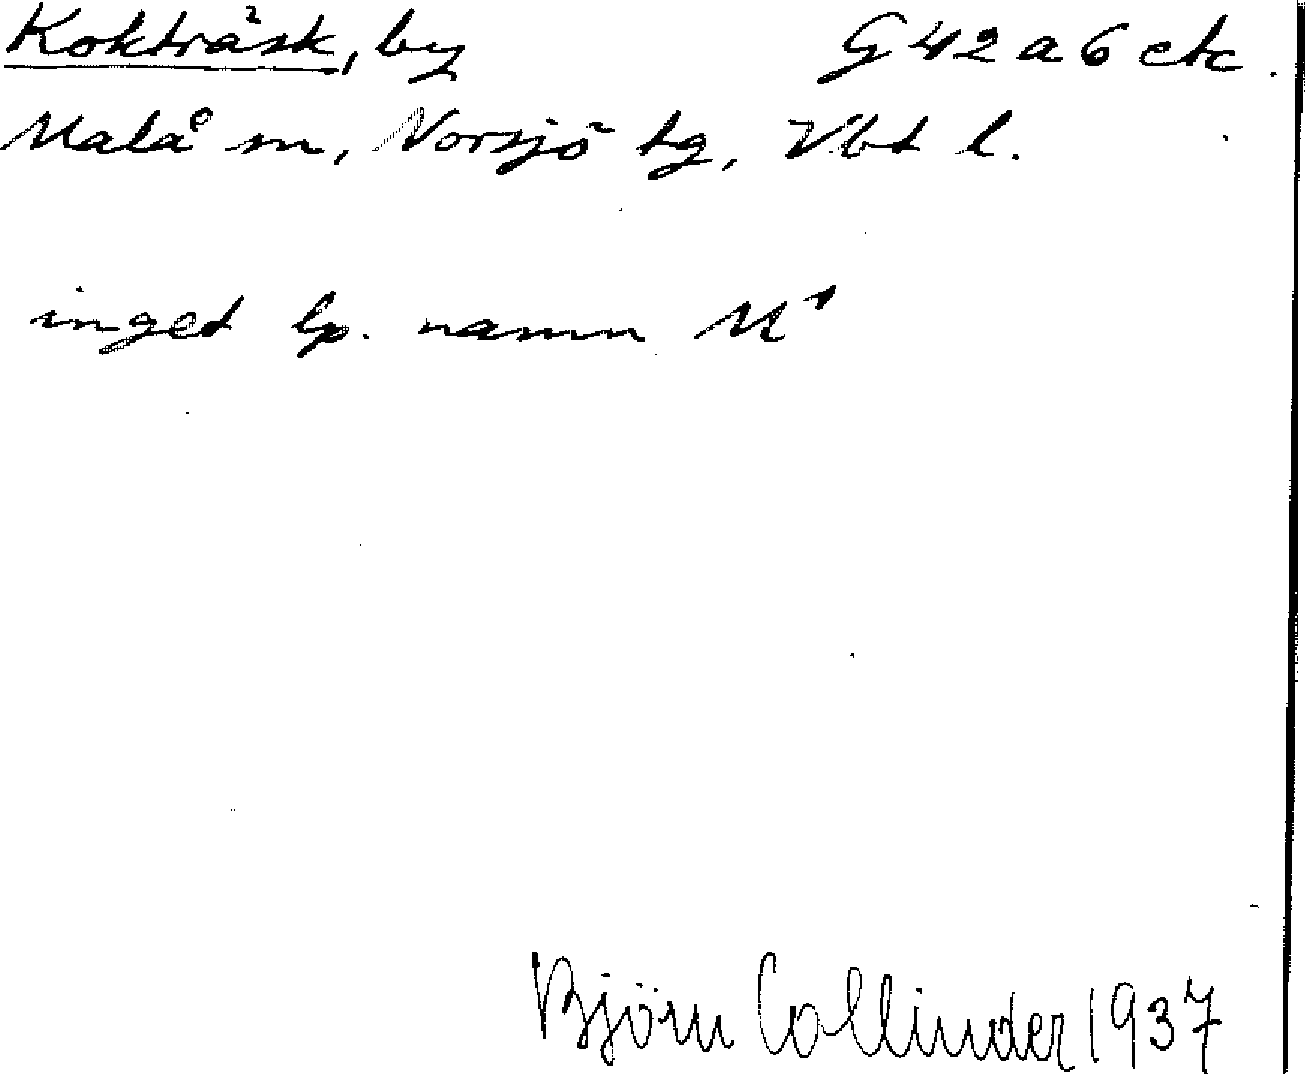 Kokträsk, by G 42 a 6 etc.
Malå sn, Norsjö tg, Vbt l.
inget lp. namn M¹
Björn Collinder 1937